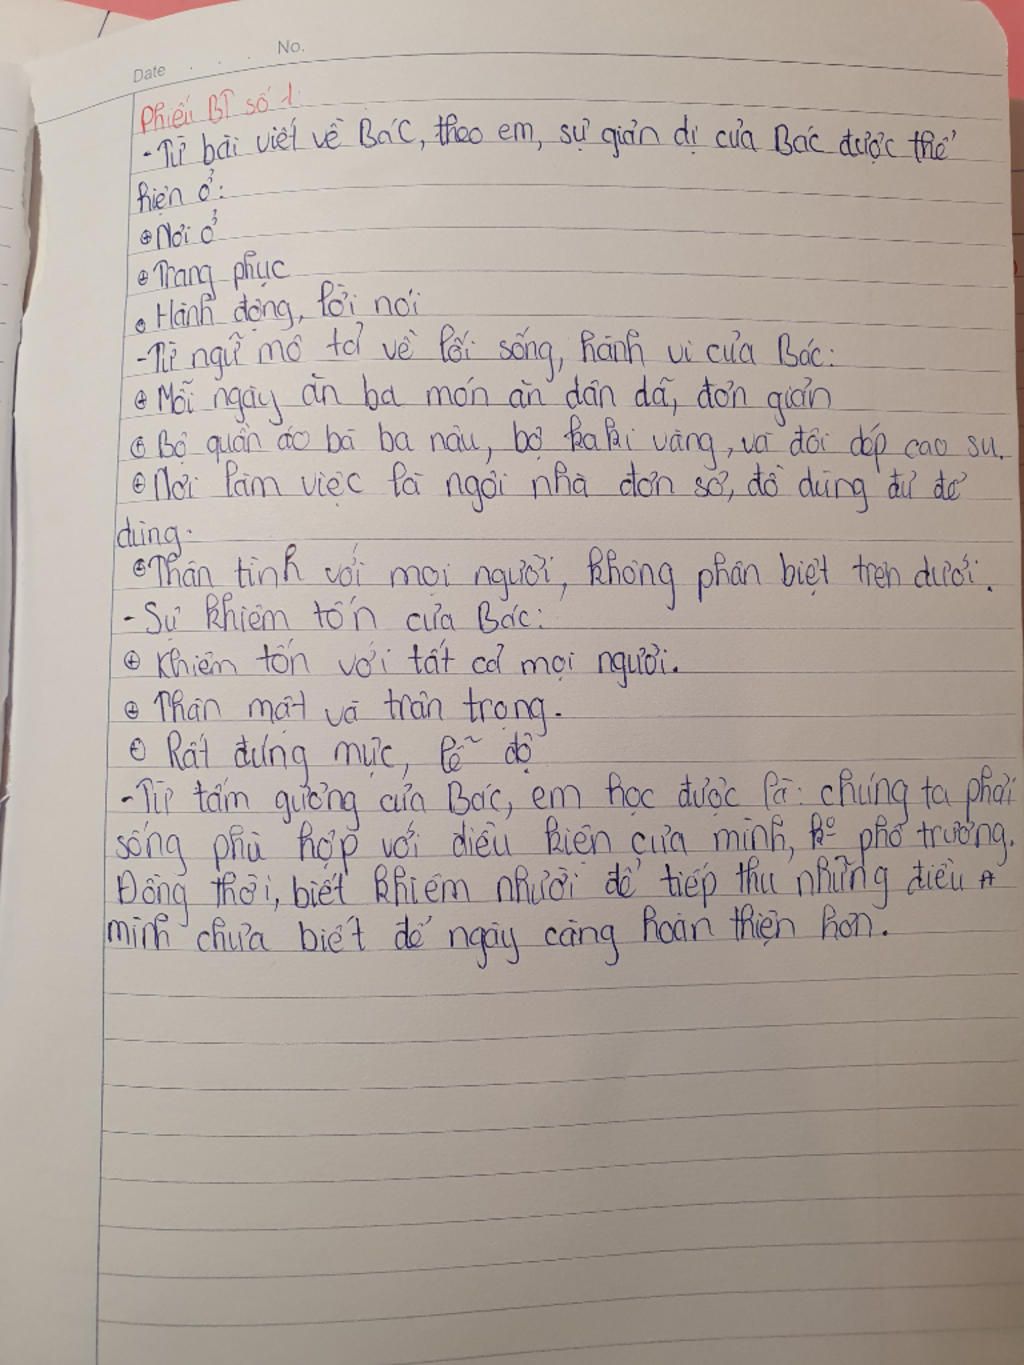 Date . . . No.
Phiếu BT số 1
-Từ bài viết về Bác, theo em, sự giản dị của Bác được thể
hiện ở:
⊕ Nơi ở
⊕ Trang phục
⊕ Hành động, lời nói
-Từ ngữ mô tả về lối sống, hành vi của Bác:
⊕ Mỗi ngày ăn ba món ăn dân dã, đơn giản
⊕ Bộ quần áo bà ba nâu, bộ kaki vàng, và đôi dép cao su.
⊕ Nơi làm việc là ngôi nhà đơn sơ, đồ dùng đủ để
dùng.
⊕ Thân tình với mọi người, không phân biệt trên dưới.
- Sự khiêm tốn của Bác:
⊕ Khiêm tốn với tất cả mọi người.
⊕ Thân mật và trân trọng.
⊕ Rất đúng mực, lễ độ
-Từ tấm gương của Bác, em học được là: chúng ta phải
sống phù hợp với điều kiện của mình, ko phô trương.
Đồng thời, biết khiêm nhười để tiếp thu những điều
mình chưa biết để ngày càng hoàn thiện hơn.